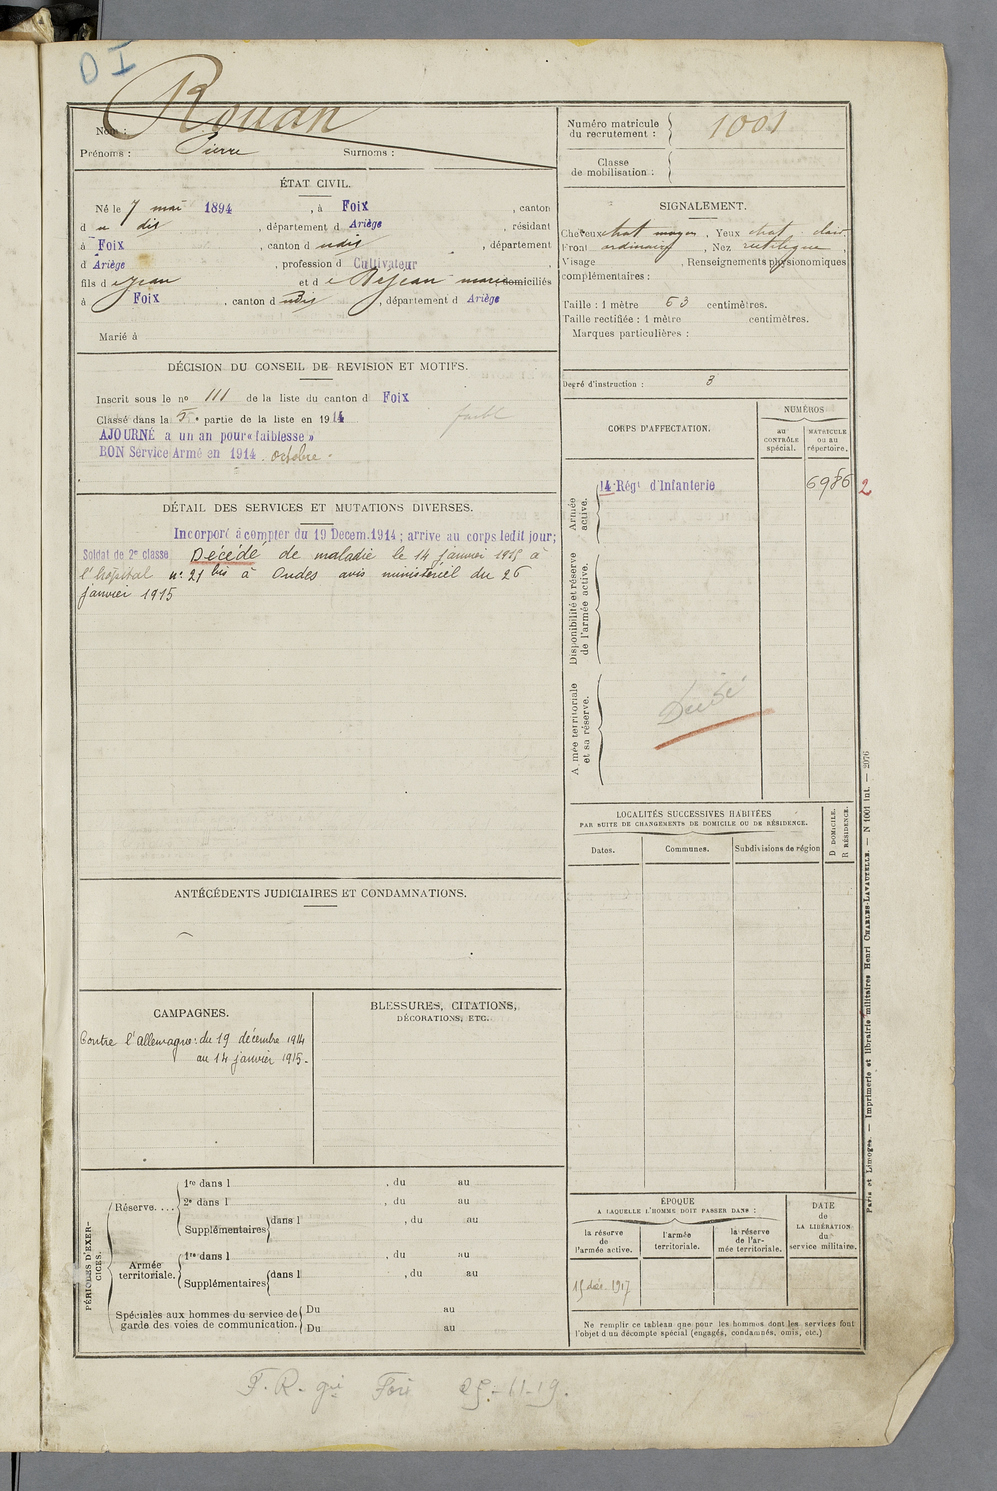 D I
Rouan
Nom :
Prénoms : Pierre Surnoms :
Numéro matricule du recrutement : 1001
Classe de mobilisation :
ÉTAT CIVIL.
Né le 7 mai 1894, à Foix, canton
d u dit, département d Ariège, résidant
à Foix, canton d udit, département
d Ariège, profession d Cultivateur
fils d e Jean et d e Dejean domiciliés
à Foix, canton d udit, département d Ariège
Marié à
SIGNALEMENT.
Cheveux chat moyen, Yeux chat. clair
Front ordinaire, Nez rectiligne,
Visage , Renseignements physionomiques
complémentaires :
Taille : 1 mètre 63 centimètres.
Taille rectifiée : 1 mètre centimètres.
Marques particulières :
Degré d'instruction : 3
DÉCISION DU CONSEIL DE REVISION ET MOTIFS.
Inscrit sous le nº 111 de la liste du canton d Foix
Classé dans la 5e partie de la liste en 1914
faible
AJOURNÉ a un an pour « faiblesse »
BON Service Armé en 1914 octobre.
CORPS D'AFFECTATION.
NUMÉROS
au CONTRÔLE spécial.
MATRICULE ou au répertoire.
Armée active.
14 Régt d'Infanterie 6986 2
Disponibilité et réserve de l'armée active.
Armée territoriale et sa réserve.
Décédé
DÉTAIL DES SERVICES ET MUTATIONS DIVERSES.
Incorporé à compter du 19 Decem. 1914 ; arrive au corps ledit jour ;
Soldat de 2e classe Décédé de maladie le 14 janvier 1915 à
l'hôpital nº 21 bis à Ondes avis ministériel du 26
janvier 1915
LOCALITÉS SUCCESSIVES HABITÉES
PAR SUITE DE CHANGEMENTS DE DOMICILE OU DE RÉSIDENCE.
Dates. Communes. Subdivisions de région
D DOMICILE.
R RÉSIDENCE.
ANTÉCÉDENTS JUDICIAIRES ET CONDAMNATIONS.
CAMPAGNES.
Contre l'Allemagne : du 19 décembre 1914
au 14 janvier 1915.
BLESSURES, CITATIONS,
DÉCORATIONS, ETC.
PÉRIODES D'EXERCICES.
Réserve....
1re dans l , du au
2e dans l , du au
Supplémentaires dans l , du au
Armée territoriale.
1re dans l , du au
Supplémentaires dans l , du au
Spéciales aux hommes du service de
garde des voies de communication.
Du au
Du au
ÉPOQUE
A LAQUELLE L'HOMME DOIT PASSER DANS :
la réserve de l'armée active.
l'armée territoriale.
la réserve de l'armée territoriale.
DATE de LA LIBÉRATION du service militaire.
15 déc. 1917
Ne remplir ce tableau que pour les hommes dont les services font
l'objet d'un décompte spécial (engagés, condamnés, omis, etc.)
Paris et Limoges. — Imprimerie et librairie militaires Henri CHARLES-LAVAUZELLE. — N 1001 int. — 2076
F. R. Foix 25-11-19.